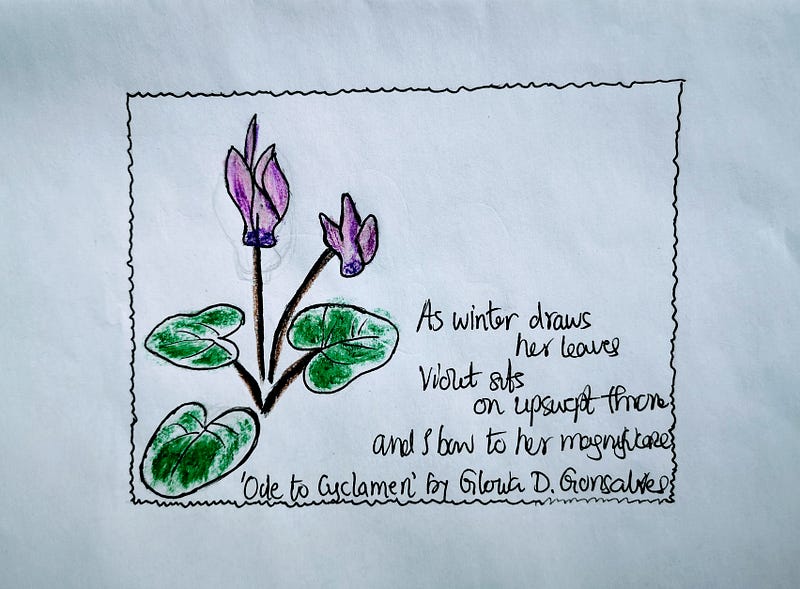 As winter draws
her leaves
Violet sits
on upswept throne
and I bow to her magnificence
'Ode to Cyclamen' by Gloria D. Gonsalves